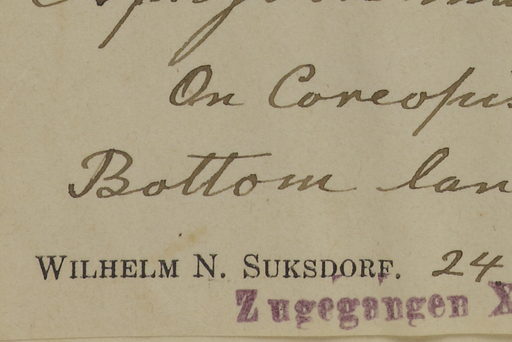 On Coreopsis
Bottom lan
WILHELM N. SUKSDORF. 24
Zugegangen X